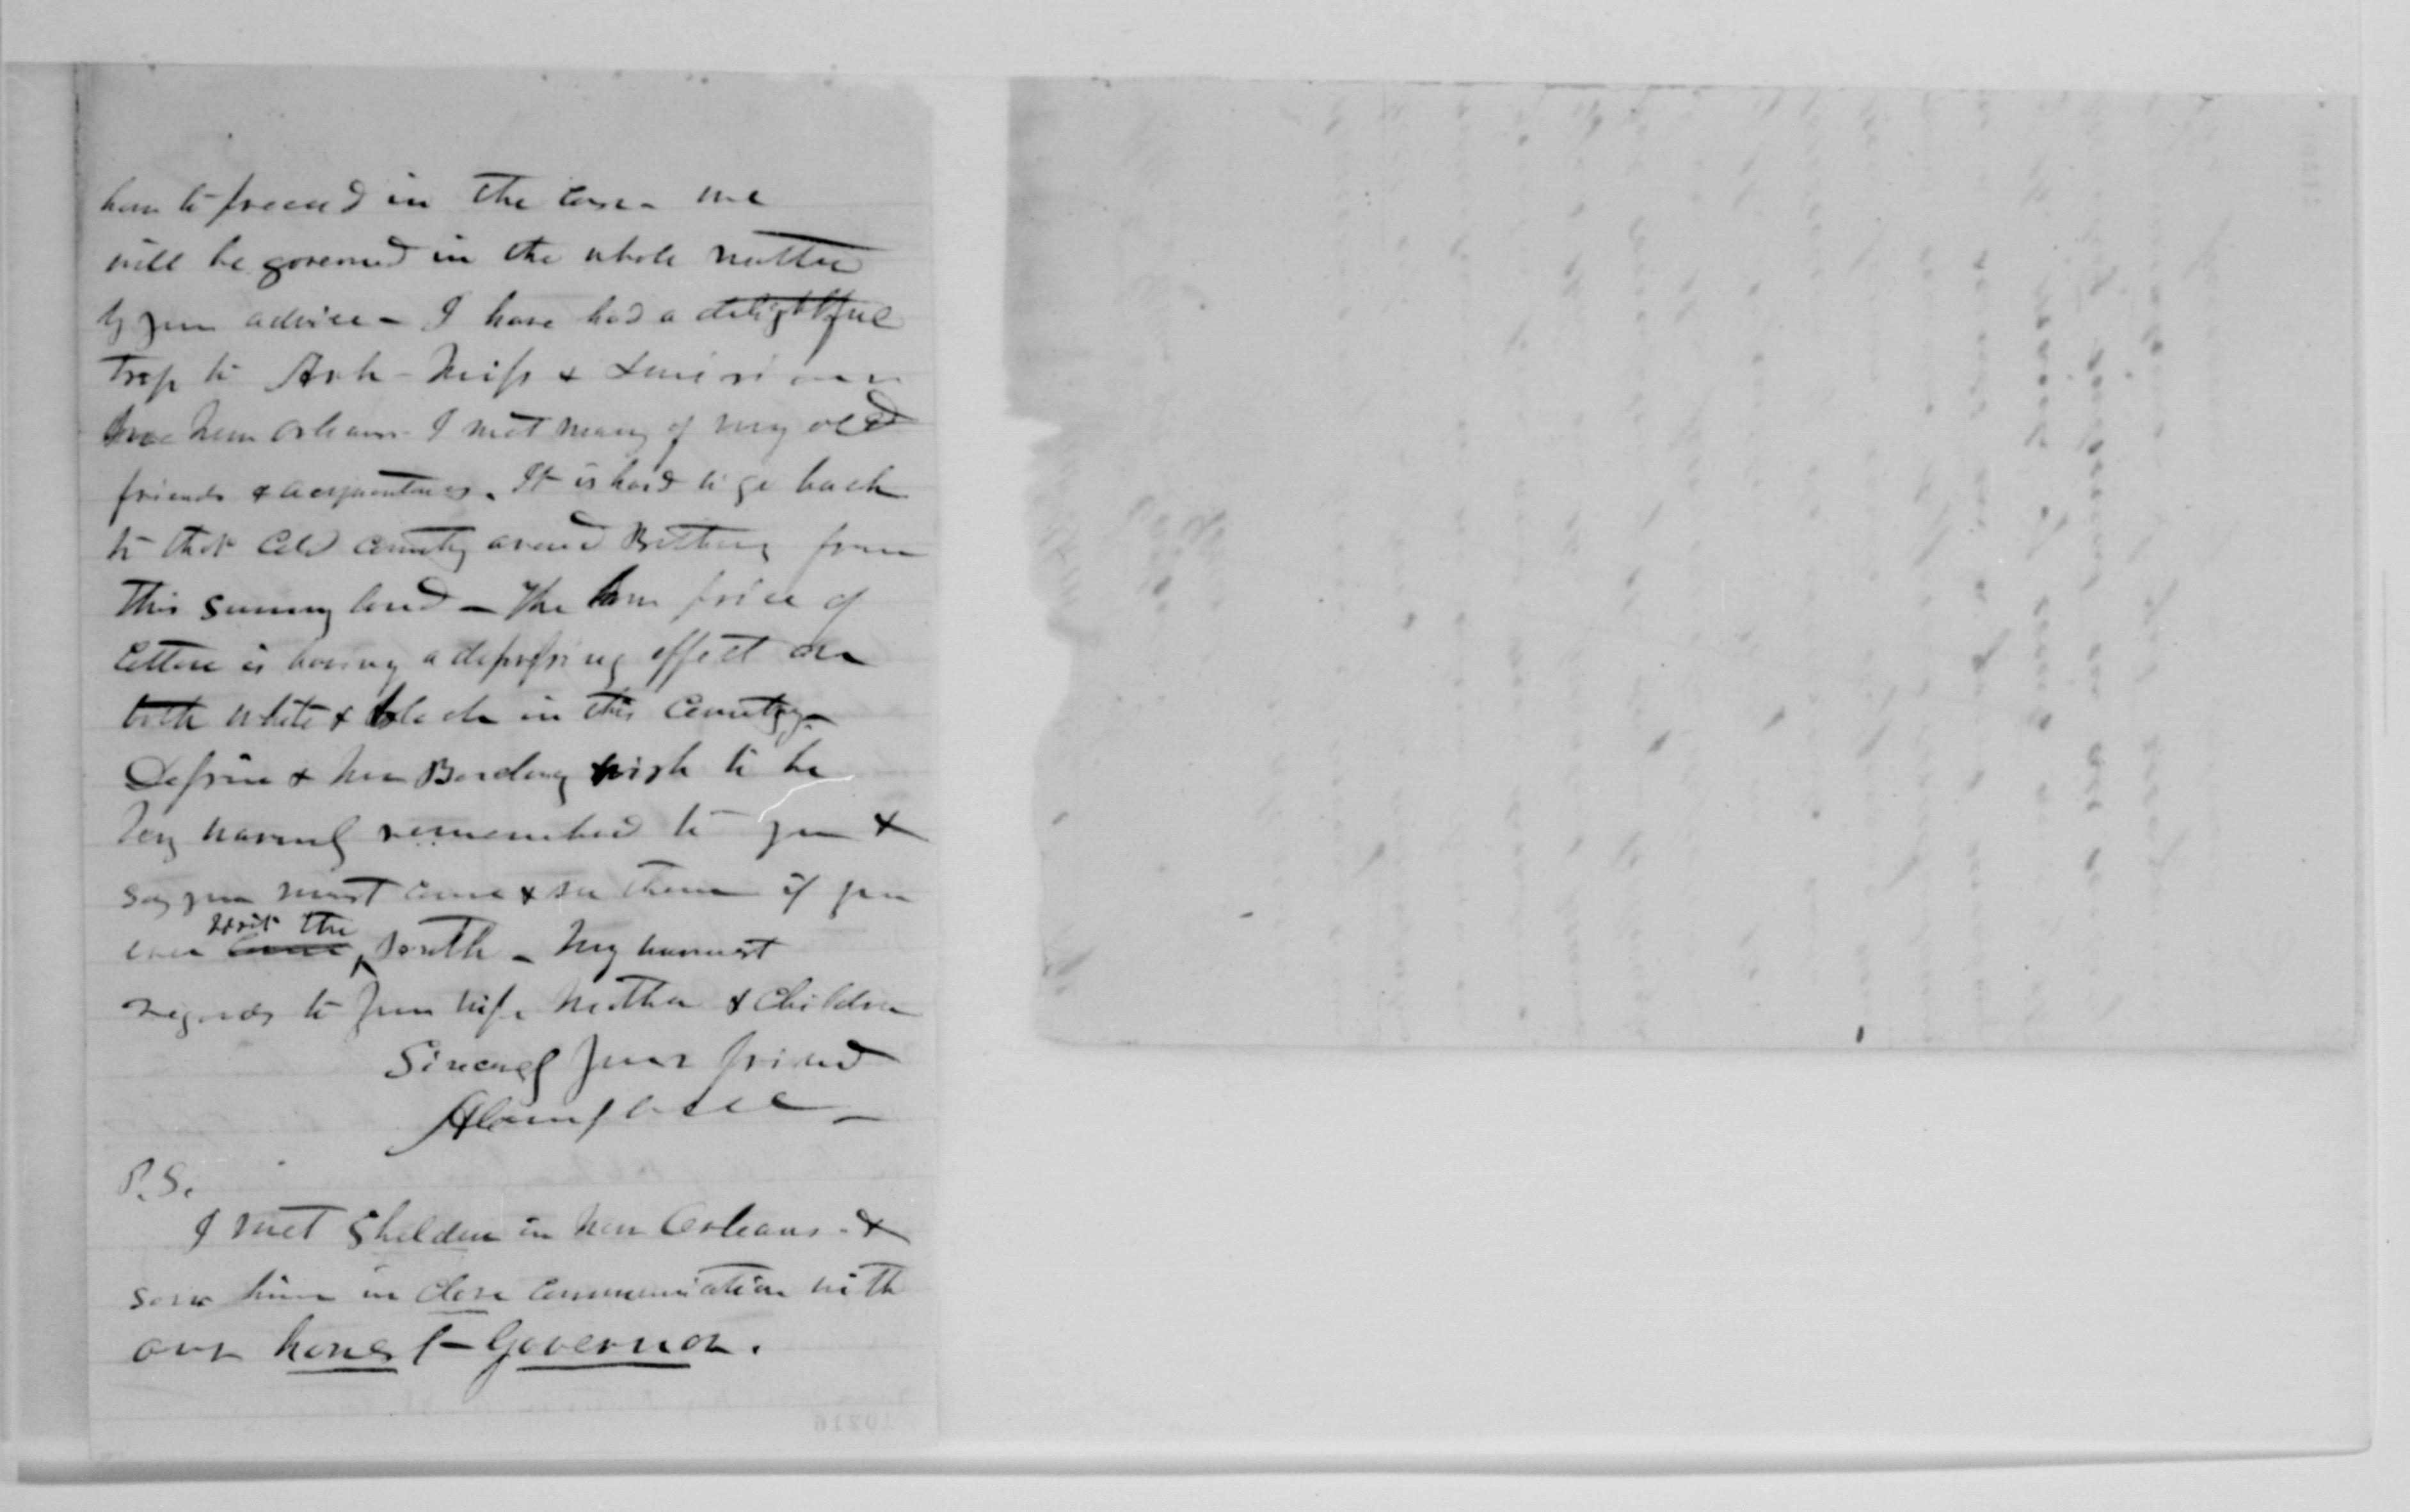 how to proceed in the case - we
will be governed in the whole matter
by your advice - I have had a delightful
trip to Ark - Miss & Louisiana
New Orleans - I met many of my old
friends & acquentances. It is hard to go back
to that cold country around Bethany from
this sunny land - The low price of
Cotton is having a depressing effect on
both white & black in this country -
& Mrs wish to be
very warmly remembered to you &
say you must come & see them if you
ever come visit the South - My warmest
regards to your wife Mother & Children
Sincerely your friend
A Campbell -
P.S.
I met Sheldon in New Orleans - &
saw him in close communication with
our honest Governor.
10216